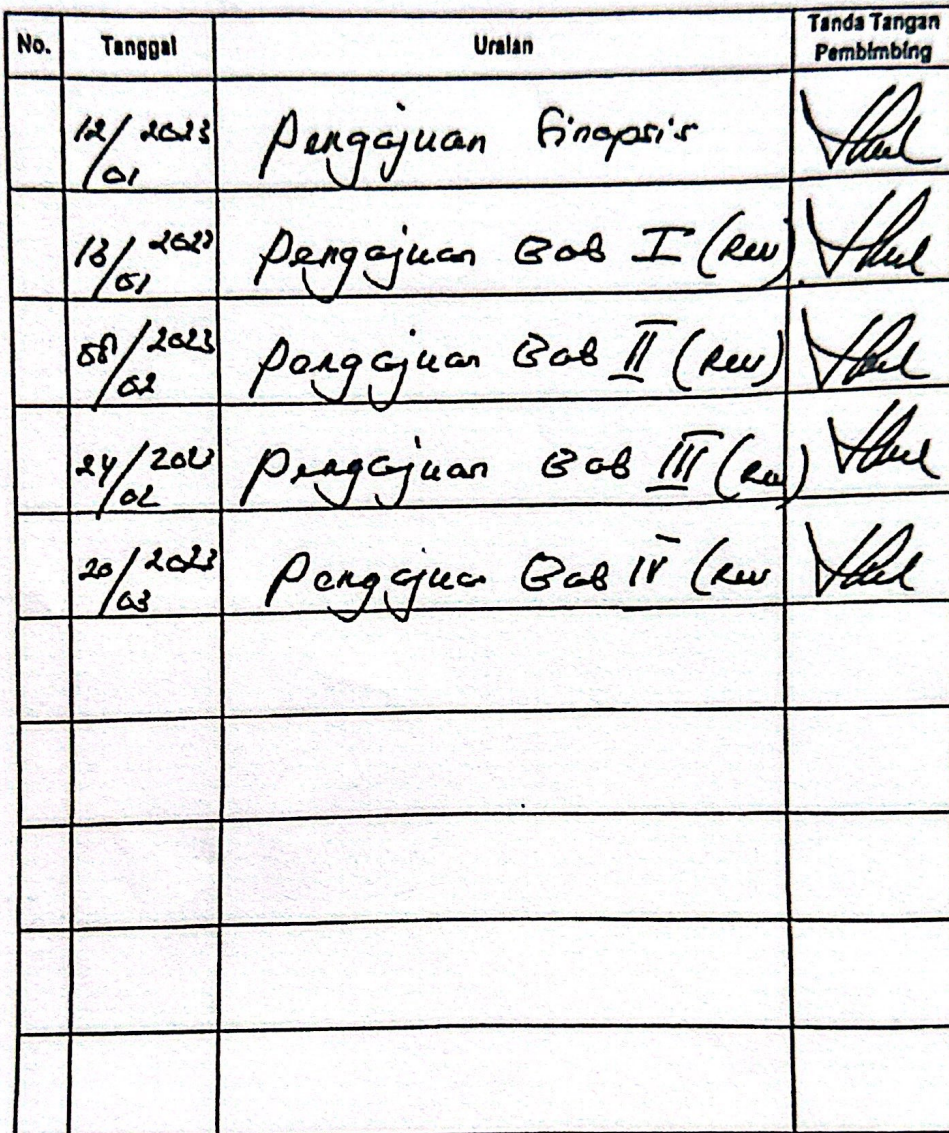 No. Tanggal Uraian Tanda Tangan Pembimbing
12/01 2023 Pengajuan Sinopsis
13/01 2023 Pengajuan Bab I (Rev)
08/02 2023 Pengajuan Bab II (Rev)
24/02 2023 Pengajuan Bab III (Rev)
20/03 2023 Pengajuan Bab IV (Rev